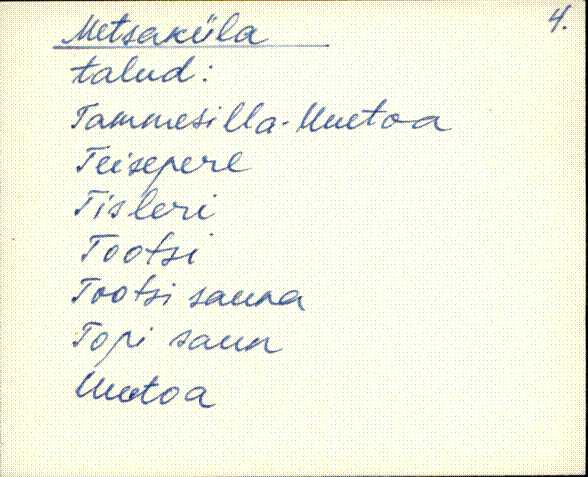 4.
Metsaküla
talud:
Tammesilla-Uuetoa
Teisepere
Tisleri
Tootsi
Tootsi sauna
Topi saun
Uuetoa